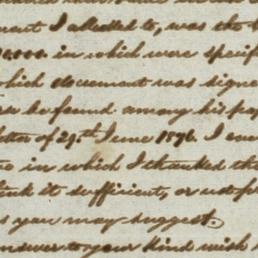 ment I alluded to, was the
0.000. in which were specif
which document was signe
be found among his pap
letter of 29th June 1896. I
in which I thanked the
it sufficient, or not
you may suggest.
answer to your kind wish